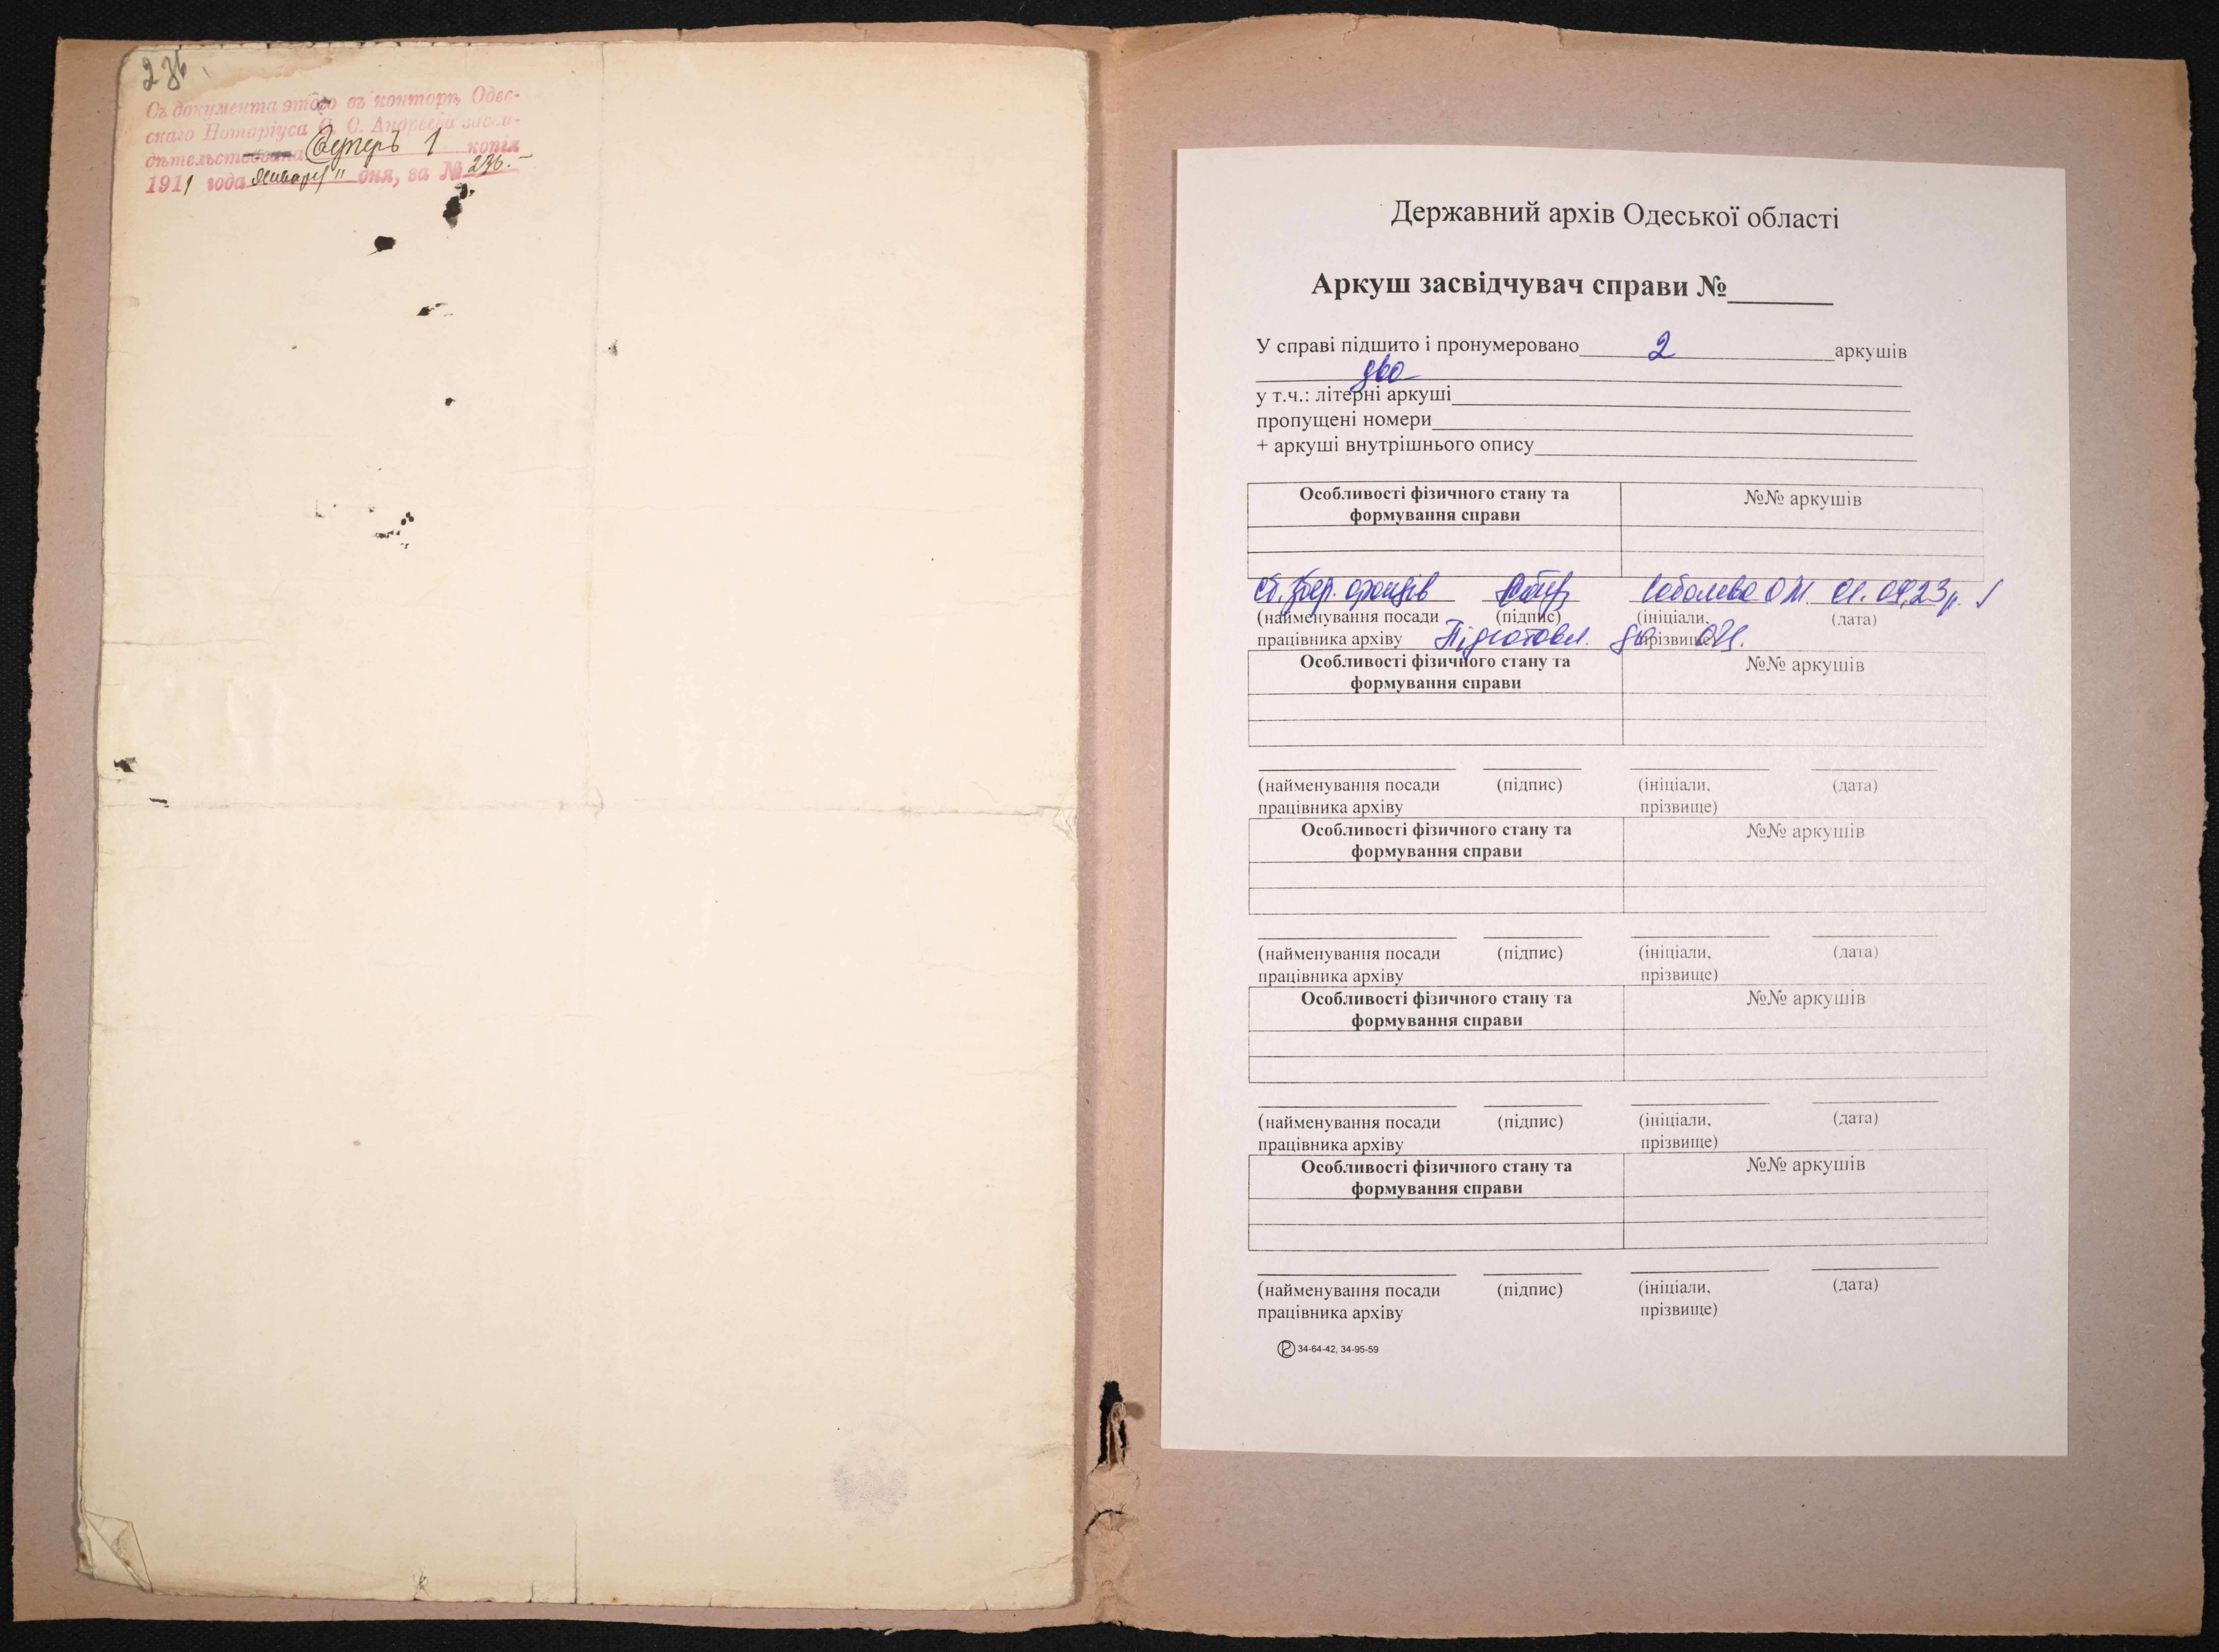 236.
Съ документа этого въ конторѣ Одес-
скаго Нотаріуса С. О. Андреева засви-
дѣтельствована 1 копія
1911 года Января 11 дня, за № 236.-
Державний архів Одеської області
Аркуш засвідчувач справи №______
У справі підшито і пронумеровано 2 аркушів
два
у т.ч.: літерні аркуші
пропущені номери
+ аркуші внутрішнього опису
Особливості фізичного стану та формування справи №№ аркушів
Ст. збер. фондів Соболєва О.М. 01.04.23 р.
(найменування посади (підпис) (ініціали, (дата)
працівника архіву прізвище)
Підготовл. до
Особливості фізичного стану та формування справи №№ аркушів
(найменування посади (підпис) (ініціали, (дата)
працівника архіву прізвище)
Особливості фізичного стану та формування справи №№ аркушів
(найменування посади (підпис) (ініціали, (дата)
працівника архіву прізвище)
Особливості фізичного стану та формування справи №№ аркушів
(найменування посади (підпис) (ініціали, (дата)
працівника архіву прізвище)
Особливості фізичного стану та формування справи №№ аркушів
(найменування посади (підпис) (ініціали, (дата)
працівника архіву прізвище)
34-64-42, 34-95-59